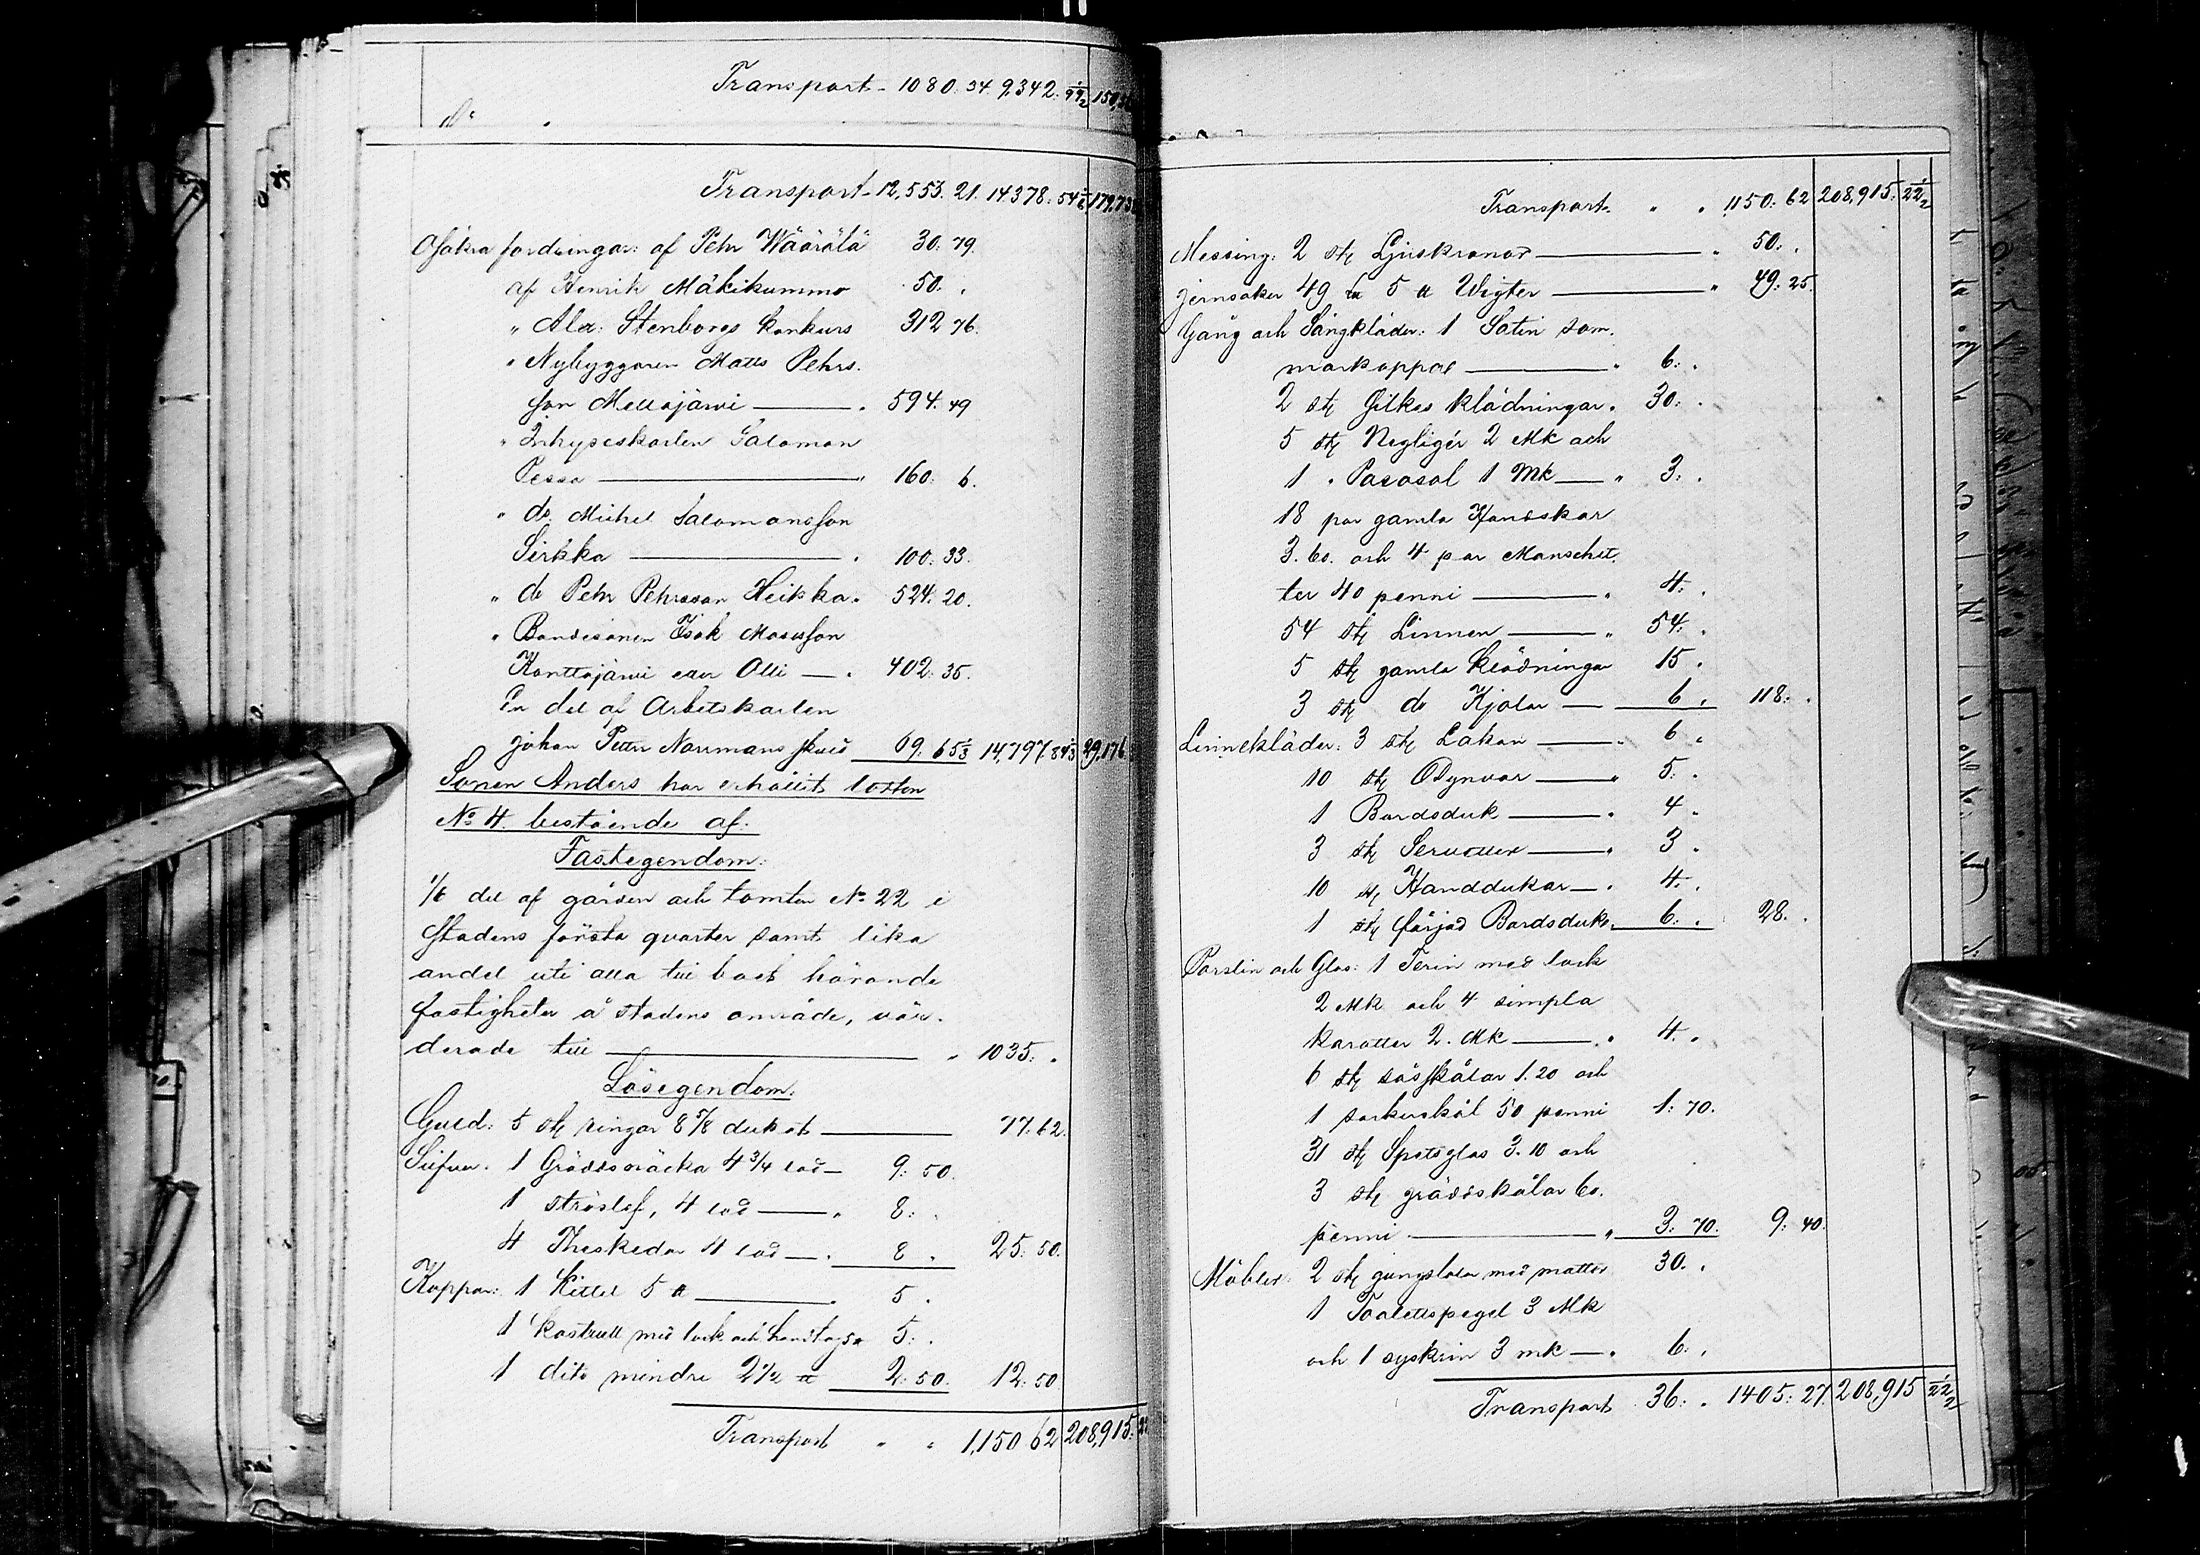 Transport 1080. 54 9,342. 99 1/2 150,
Transport 12,553. 21. 14378. 54 1/6 179,738
Osäkra fordringar: af Pehr Wäärälä 30. 79.
af Henrik Mäkikummo 50. .
" Alex: Stenborgs konkurs 312 76.
" Nybyggaren Matts Pehrs.
son Mellajärvi 594. 49
" Inhyseskarlen Salomon
Pessa 160. 6.
" do Michel Salomonsson
Sirkka 100. 33.
" do Pehr Pehrsson Heikka. 524. 20.
" Bondesonen Isak Mosesson
Konttajärvi eller Olli 402. 35.
En del af Arbetskarlen
Johan Petter Norrmans skuld 69. 65 1/3 14,797. 84 1/3 29,176
Sonen Anders har erhållit lotten
No 4. bestående af:
Fastegendom:
1/6 del af gården och tomten No 22 i
Stadens första quarter samt lika
andel uti alla till boet hörande
fastigheter å stadens område, vär-
derade till 1035. .
Lösegendom:
Guld: 5 st ringar 8 5/8 dukat 77. 62.
Silfver. 1 Gräddsnäcka 4 3/4 lod 9. 50.
1 ströslef, 4 lod 8. .
4 Theskedar 4 lod 8 . 25. 50.
Koppar: 1 Kittel 5 ℔ 5 .
1 kastrull med lock och handtag 5. .
1 dito mindre 2 1/2 ℔ 2. 50. 12. 50
Transport " " 1,150 62 208,915.
Transport. " " 1,150. 62 208,915. 22 1/2
Messing: 2 st Ljuskronor " 50. .
Jernsaker 49 5 ℔ Wigter " 49. 25.
Gång och Sängkläder: 1 Satin som.
markappa " 6. .
2 st Silkes klädningar. 30. .
5 st Negligér 2 Mk och
1 " Parasol 1 Mk " 3. .
18 par gamla Handskar
3. 60. och 4 par Manschet.
ter 40 penni " 4. .
54 st Linnen " 54. .
5 st gamla klädningar 15 .
3 st do Kjolar 6 . 118. .
Linnekläder: 3 st Lakan " 6 .
10 st Dynvar " 5. .
1 Bordsduk " 4 .
3 st Servetter " 3 .
10 st Handdukar . 4. .
1 st färgad Bordsduk 6. . 28. .
Porslin och Glas: 1 Terin med lock
2 Mk och 4 simpla
karotter 2. Mk " 4. .
6 st såsskålar 1. 20 och
1 sockerskål 50 penni 1. 70.
31 st Spetsglas 3. 10 och
3 st gräddskålar 60.
penni " 3. 70. 9. 40.
Möbler: 2 st gungstolar med mattor 30. .
1 Toalettspegel 3 Mk
och 1 syskrin 3 mk . 6. .
Transport 36. . 1405. 27. 208,915 22 1/2